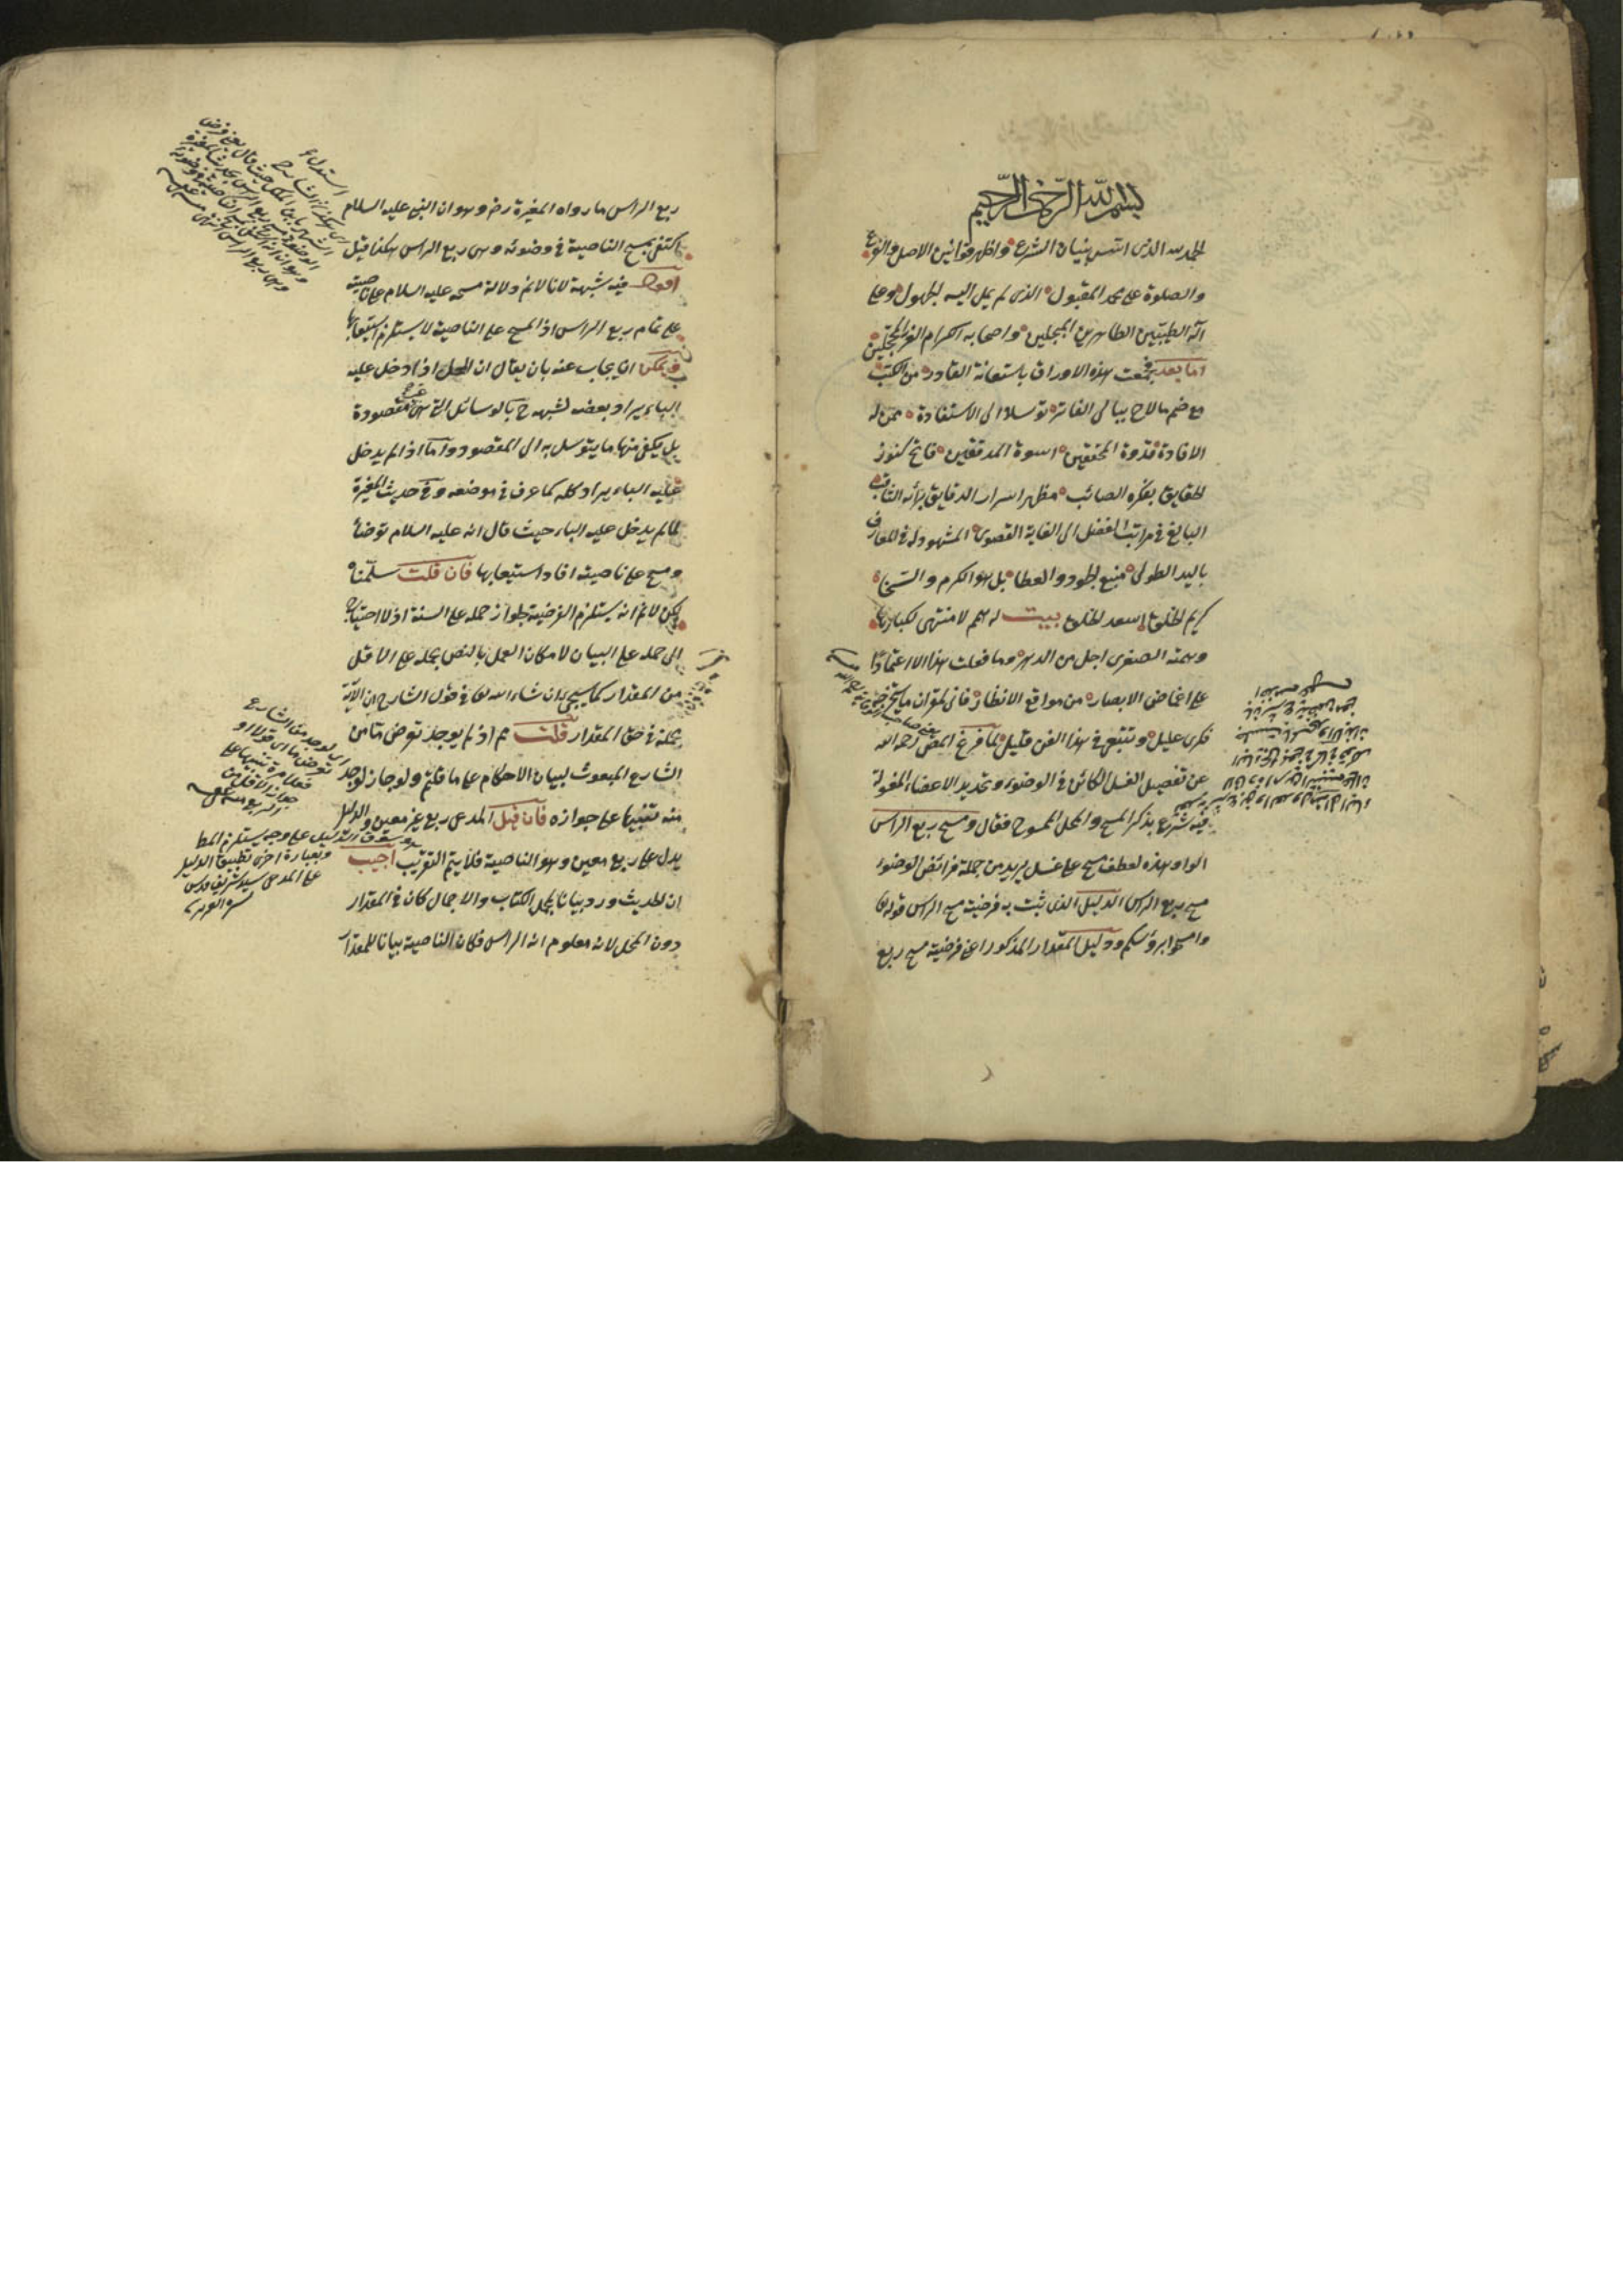 بسم الله الرحمن الرحيم
الحمد لله الذى اسس بنيان الشرع واظهر قوانين الاصل والفرع
والصلوة على محمد المقبول الذى لم يمل اليه لجهول وعلى
آله الطيبين الطاهرين المبجلين واصحابه الكرام الغر المحجلين
اما بعد فجمعت هذه الاوراق باستعانة القادر من الكتب
مع ضم ما لاح ببالى الفاتر توسلا الى الاستفادة ممن له
الافادة قدوة المحققين اسوة المدققين فاتح كنوز
الحقايق بفكره الصائب مظهر اسرار الدقايق برأيه الثاقب
البالغ فى مراتب الفضل الى الغاية القصوى المشهود له فى المعارف
باليد الطولى منبع الجود والعطا بل هو الكرم والسخاء
كريم الخلق اسعد الخلق بيت له همم لا منتهى لكبارها
وهمته الصغرى اجل من الدهر وما فعلت هذا الا اعتمادا
على اغماض الابصار من مواقع الانظار فانى لمقر ان ما يستخرجه
فكرى عليل وتتبعى فى هذا الفن قليل لما فرغ المص رحمه الله
عن تفصيل الغسل الكائن فى الوضوء وتحديد الاعضاء المغسولة
فيه شرع بذكر المسح والمحل الممسوح فقال ومسح ربع الراس
الواو هذه لعطف مسح على غسل يريد من جملة فرائض الوضوء
مسح ربع الراس الدليل الذى ثبت به فرضية مسح الراس قوله تع
وامسحوا برؤسكم ودليل المقدار المذكور اعنى فرضية مسح ربع
ربع الراس ما رواه المغيرة رض وهو ان النبى عليه السلام
اكتفى بمسح الناصية فى وضوئه وهى ربع الراس هكذا قيل
اقول فيه شبهة لانا لا نم دلالة مسحه عليه السلام على ناصيته
على تمام ربع الراس اذ المسح على الناصية لا يستلزم استيعابها
ويمكن ان يجاب عنه بان يقال ان المحل اذا دخل عليه
الباء يراد بعضه لشبهه ح بالوسائل التى هى غير مقصودة
بل يكفى منها ما يتوسل به الى المقصود واما اذا لم يدخل
عليه الباء يراد كله كما عرف فى موضعه وفى حديث المغيرة
لما لم يدخل عليه الباء حيث قال انه عليه السلام توضأ
ومسح على ناصيته افاد استيعابها فان قلت سلمنا
لكن لا نم انه يستلزم الفرضية لجواز حمله على السنة اذ لا احتياج
الى حمله على البيان لامكان العمل بالنص بحمله على الاقل
من المقدار كما سيجئ ان شاء الله تع فى قول الشارح ان الآية
مجملة فى حق المقدار قلت نعم اذ لم يوجد تعرض ما من
الشارع المبعوث لبيان الاحكام على ما قلتم ولو جاز لوجد
منه تنبيها على جوازه فان قيل المدعى ربع غير معين والدليل
يدل على ربع معين وهو الناصية فلا يتم التقريب اجيب
ان الحديث ورد بيانا لمجمل الكتاب والاجمال كان فى المقدار
دون المحل لانه معلوم انه الراس فكان الناصية بيانا للمقدار
اى لوجد من الشارع
تعرض ما اى قولا او
فعلا مرة تنبيها على
جواز الاقل من
الربع
سوق الدليل على وجه يستلزم المط
وبعبارة اخرى تطبيق الدليل
على المدعى سيد شريف قدس
سره العزيز